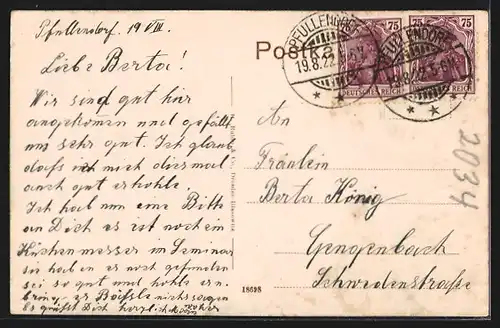 Pfullendorf, 19 VIII.
Postka
PFULLENDORF
19.8.22. 5-6N
PFULLENDORF
19.8.22. 5-6N
75 75
DEUTSCHES REICH
DEUTSCHES REICH
Liebe Berta!
Wir sind gut hier
angekommen und gefällt
uns sehr gut. Ich glaub
daß ich mich diesmal
auch gut erhohle.
Ich hab nun eine Bitte
an Dich es ist noch ein
Küchenmesser im Seminar
sie haben es noch gefunden
sei so gut und hohle es
nichts sagen
Es grüßt Dich herzlich
An
Fräulein
Berta König
Gengenbach
Schwedenstraße
2034
18698